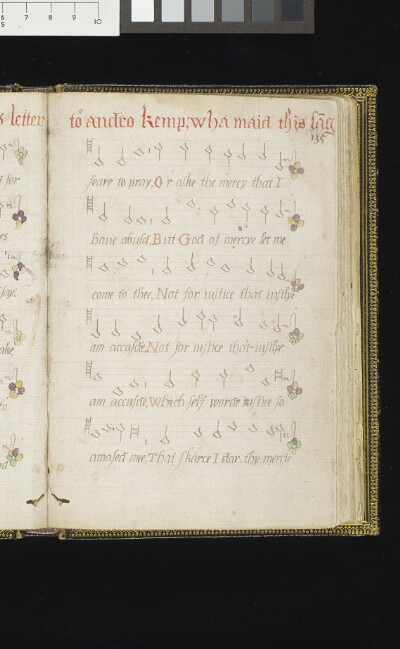 6 7 8 9 10
s letter
to andro kemp, wha maid this sang
135
feare to pray, Or aske the mercy that I
haue abusit, But God of mercye let me
come to thee, Not for iustice that iustlye
am accusde, Not for iustice that iustlye
am accusde, Which self worde iustice so
amased mee, That skarce I dar thy mercye